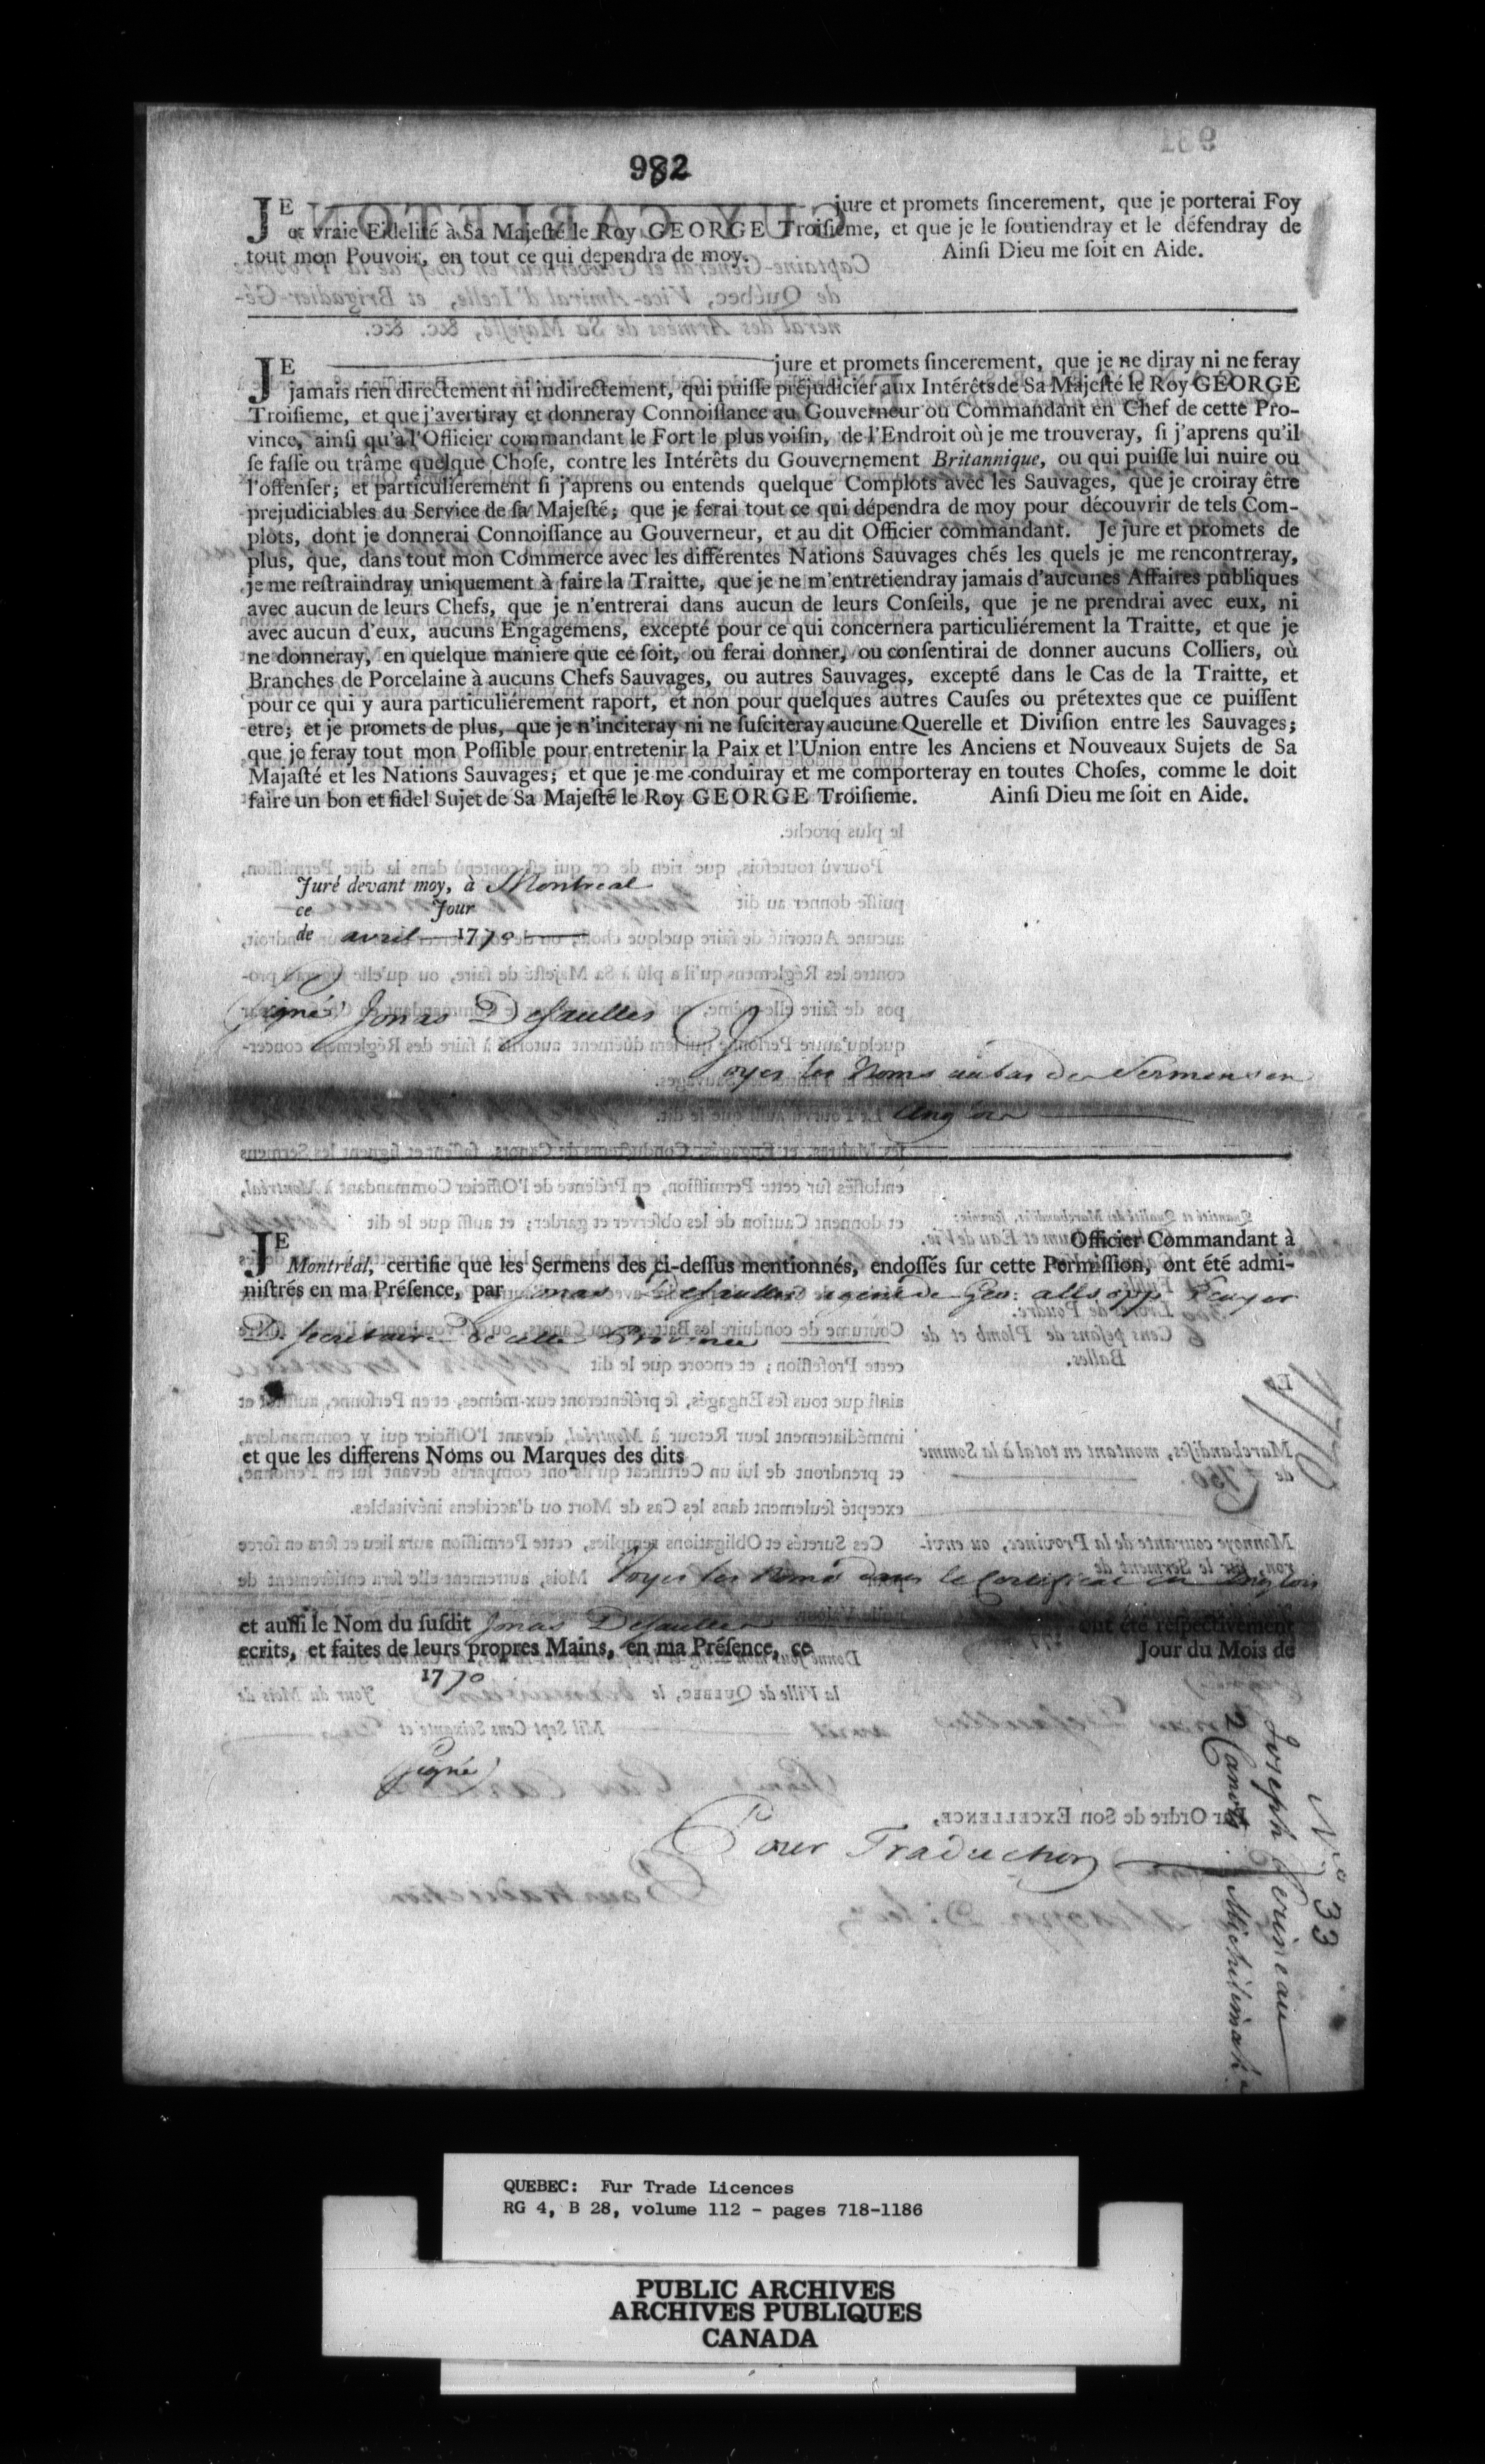 982
JE jure et promets ſincerement, que je porterai Foy
et vraie Fidelité à Sa Majeſté le Roy GEORGE Troiſieme, et que je le ſoutiendray et le défendray de
tout mon Pouvoir, en tout ce qui dependra de moy. Ainſi Dieu me ſoit en Aide.
JE jure et promets ſincerement, que je ne diray ni ne feray
jamais rien directement ni indirectement, qui puiſſe préjudicier aux Intérêts de Sa Majeſté le Roy GEORGE
Troiſieme, et que j'avertiray et donneray Connoiſſance au Gouverneur ou Commandant en Chef de cette Pro-
vince, ainſi qu'à l'Officier commandant le Fort le plus voiſin, de l'Endroit où je me trouveray, ſi j'aprens qu'il
ſe faſſe ou trâme quelque Choſe, contre les Intérêts du Gouvernement Britannique, ou qui puiſſe lui nuire ou
l'offenſer; et particuliérement ſi j'aprens ou entends quelque Complots avec les Sauvages, que je croiray être
prejudiciables au Service de ſa Majeſté; que je ferai tout ce qui dépendra de moy pour découvrir de tels Com-
plots, dont je donnerai Connoiſſance au Gouverneur, et au dit Officier commandant. Je jure et promets de
plus, que, dans tout mon Commerce avec les différentes Nations Sauvages chés les quels je me rencontreray,
je me reſtraindray uniquement à faire la Traitte, que je ne m'entretiendray jamais d'aucunes Affaires publiques
avec aucun de leurs Chefs, que je n'entrerai dans aucun de leurs Conſeils, que je ne prendrai avec eux, ni
avec aucun d'eux, aucuns Engagemens, excepté pour ce qui concernera particuliérement la Traitte, et que je
ne donneray, en quelque maniere que ce ſoit, ou ferai donner, ou conſentirai de donner aucuns Colliers, où
Branches de Porcelaine à aucuns Chefs Sauvages, ou autres Sauvages, excepté dans le Cas de la Traitte, et
pour ce qui y aura particuliérement raport, et non pour quelques autres Cauſes ou prétextes que ce puiſſent
etre; et je promets de plus, que je n'inciteray ni ne ſuſciteray aucune Querelle et Diviſion entre les Sauvages;
que je feray tout mon Poſſible pour entretenir la Paix et l'Union entre les Anciens et Nouveaux Sujets de Sa
Majaſté et les Nations Sauvages; et que je me conduiray et me comporteray en toutes Choſes, comme le doit
faire un bon et fidel Sujet de Sa Majeſté le Roy GEORGE Troiſieme. Ainſi Dieu me ſoit en Aide.
Juré devant moy, à Montreal
ce Jour
de avril 1770
(signé) Jonas Desaulles
Voyes les Noms au bas des Sermens en
Anglois
JE Officier Commandant à
Montréal, certifie que les Sermens des ci-deſſus mentionnés, endoſſés ſur cette Permiſſion, ont été admi-
niſtrés en ma Préſence, par Jonas Desaulles agent de Geo: allsopp Ecuyer
D. Secretaire de cette Province
et que les differens Noms ou Marques des dits
Voyes les Noms dans le Certificat en Anglois
et auſſi le Nom du ſuſdit Jonas Desaulles ont été reſpectivement
ecrits, et faites de leurs propres Mains, en ma Préſence, ce Jour du Mois de
1770
(signé)
Pour Traduction
1770
No. 33
Joseph Perineau
2 Canots Michilimak.
QUEBEC: Fur Trade Licences
RG 4, B 28, volume 112 - pages 718-1186
PUBLIC ARCHIVES
ARCHIVES PUBLIQUES
CANADA